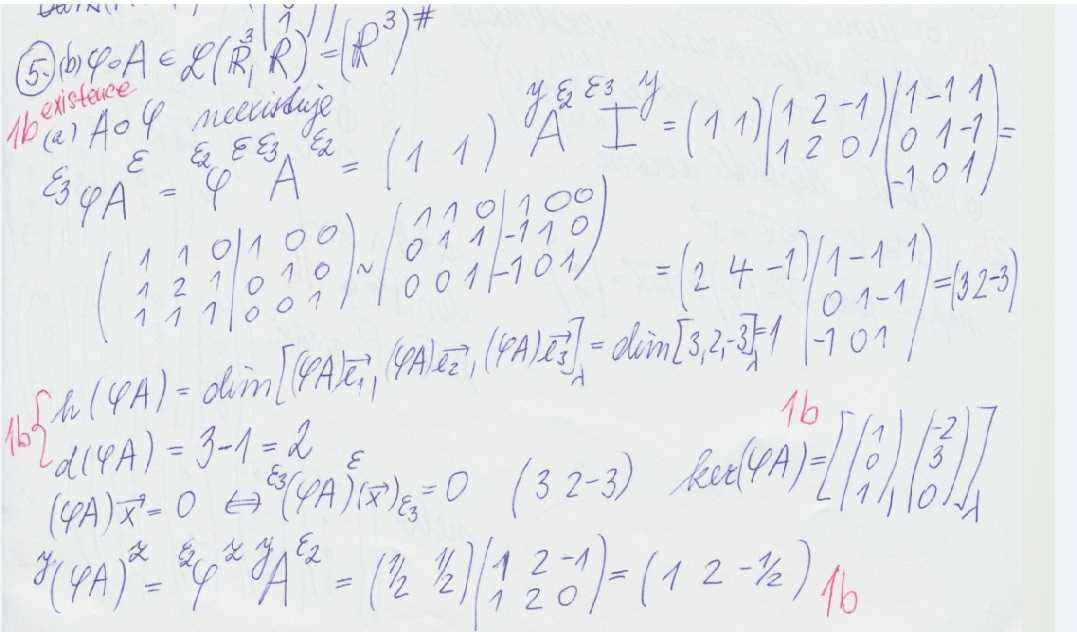 (1)
5. (b) φ∘A ∈ ℒ(ℝ³, ℝ) = (ℝ³)#
1b existence
(a) A∘φ neexistuje
ᵋ³φAᵋ = ᵋ²φᵋ ᵋ³Aᵋ² = (1 1) ʸAᵋ² ᵋ³Iʸ = (1 1) (1 2 -1 | 1 2 0) (1 -1 1 | 0 1 -1 | -1 0 1) =
(1 1 0 | 1 0 0
1 2 1 | 0 1 0
1 1 1 | 0 0 1) ~ (1 1 0 | 1 0 0
0 1 1 | -1 1 0
0 0 1 | -1 0 1)
= (2 4 -1) (1 -1 1 | 0 1 -1 | -1 0 1) = (3 2 -3)
1b { h(φA) = dim[(φA)e⃗₁, (φA)e⃗₂, (φA)e⃗₃]λ = dim[3, 2, -3]λ = 1
d(φA) = 3-1 = 2
1b
(φA)x⃗ = 0 ⇔ ᵋ³(φA)ᵋ(x⃗)ε₃ = 0 (3 2 -3) ker(φA) = [(1 0 1), (-2 3 0)]λ
ʸ(φA)ᶻ = ᵋ²φᶻ ʸAᵋ² = (1/2 1/2) (1 2 -1 | 1 2 0) = (1 2 -1/2) 1b